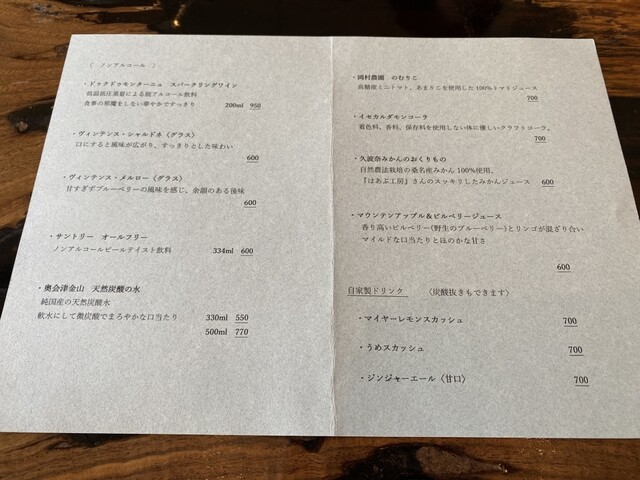 〈 ノンアルコール 〉
・ドゥクドゥモンターニュ スパークリングワイン
低温低圧蒸留による脱アルコール飲料
食事の邪魔をしない華やかですっきり 200ml 950
・ヴィンテンス・シャルドネ〈グラス〉
口にすると風味が広がり、すっきりとした味わい
600
・ヴィンテンス・メルロー〈グラス〉
甘すぎずブルーベリーの風味を感じ、余韻のある後味
600
・サントリー オールフリー
ノンアルコールビールテイスト飲料 334ml 600
・奥会津金山 天然炭酸の水
純国産の天然炭酸水
軟水にして微炭酸でまろやかな口当たり 330ml 550
500ml 770
・岡村農園 のむりこ
高糖度ミニトマト、あまりこを使用した100%トマトジュース
700
・イセカルダモンコーラ
着色料、香料、保存料を使用しない体に優しいクラフトコーラ。
700
・久波奈みかんのおくりもの
自然農法栽培の桑名産みかん100%使用。
『はあぶ工房』さんのスッキリしたみかんジュース 600
・マウンテンアップル＆ビルベリージュース
香り高いビルベリー(野生のブルーベリー)とリンゴが混ざり合い
マイルドな口当たりとほのかな甘さ
600
自家製ドリンク 〈炭酸抜きもできます〉
・マイヤーレモンスカッシュ 700
・うめスカッシュ 700
・ジンジャーエール〈甘口〉 700